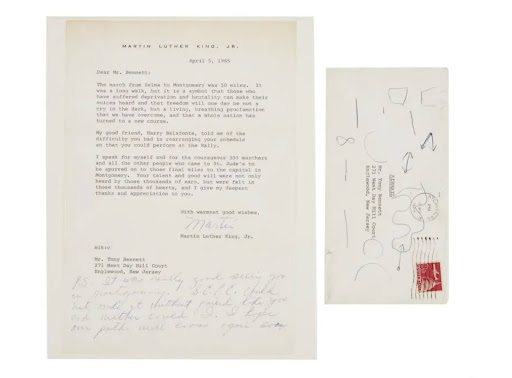 MARTIN LUTHER KING, JR.
April 5, 1965
Dear Mr. Bennett:
The march from Selma to Montgomery was 50 miles. It
was a long walk, but it is a symbol that those who
have suffered deprivation and brutality can make their
voices heard and that freedom will one day be not a
cry in the dark, but a living, breathing proclamation
that we have overcome, and that a whole nation has
turned to a new course.
My good friend, Harry Belafonte, told me of the
difficulty you had in rearranging your schedule
so that you could perform at the Rally.
I speak for myself and for the courageous 300 marchers
and all the other people who came to St. Jude's to
be spurred on to those final miles to the capital in
Montgomery. Your talent and good will were not only
heard by those thousands of ears, but were felt in
those thousands of hearts, and I give my deepest
thanks and appreciation to you.
With warmest good wishes,
Martin
Martin Luther King, Jr.
mlk:v
Mr. Tony Bennett
271 West Day Hill Court
Englewood, New Jersey
P.S. It was really good seeing you
in Montgomery. S.C.L.C. could
not
like you
and
I hope
our path will cross again soon
AIRMAIL
Mr. Tony Bennett
271 West Day Hill Court
Englewood,
New Jersey